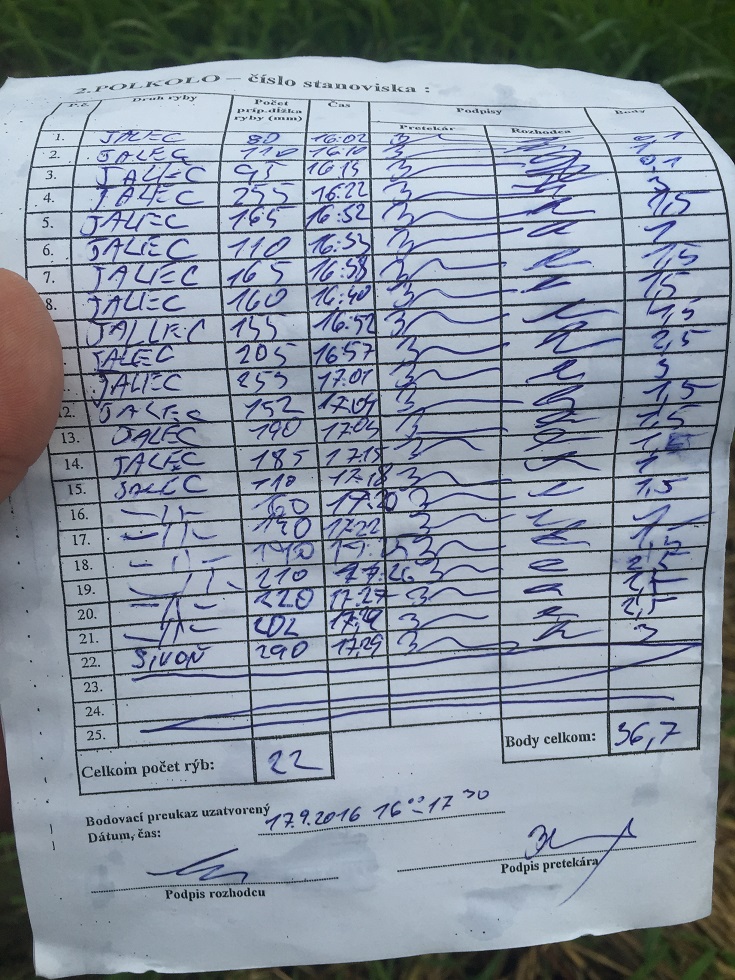 2.POLKOLO – číslo stanoviska :
P.č. Druh ryby Počet príp.dĺžka ryby (mm) Čas Podpisy Body
Pretekár Rozhodca
1. JALEC 90 16:02 0,1
2. JALEC 110 16:10 1
3. JALIEC 95 16:15 0,1
4. JALIEC 255 16:22 3
5. JALIEC 165 16:32 1,5
6. JALIEC 110 16:33 1
7. JALIEC 165 16:38 1,5
8. JALIEC 160 16:40 1,5
JALLIEC 155 16:52 1,5
JALEC 205 16:57 2,5
JALIEC 255 17:01 3
12. JALIEC 152 17:04 1,5
13. JALEC 190 1,5
14. JALEC 185 17:15
15. JALEC 110 17:18 1
16. 160 17:20 1,5
17. 17:22
18. 1
19. 210 17:26 2,5
20. 220 17:27 2,5
21. 202 2,5
22. SIVOŇ 290 17,29 3
23.
24.
25.
Celkom počet rýb: 22 Body celkom: 36,7
Bodovací preukaz uzatvorený
Dátum, čas: 17.9.2016 16 00 - 17 30
Podpis rozhodcu Podpis pretekára